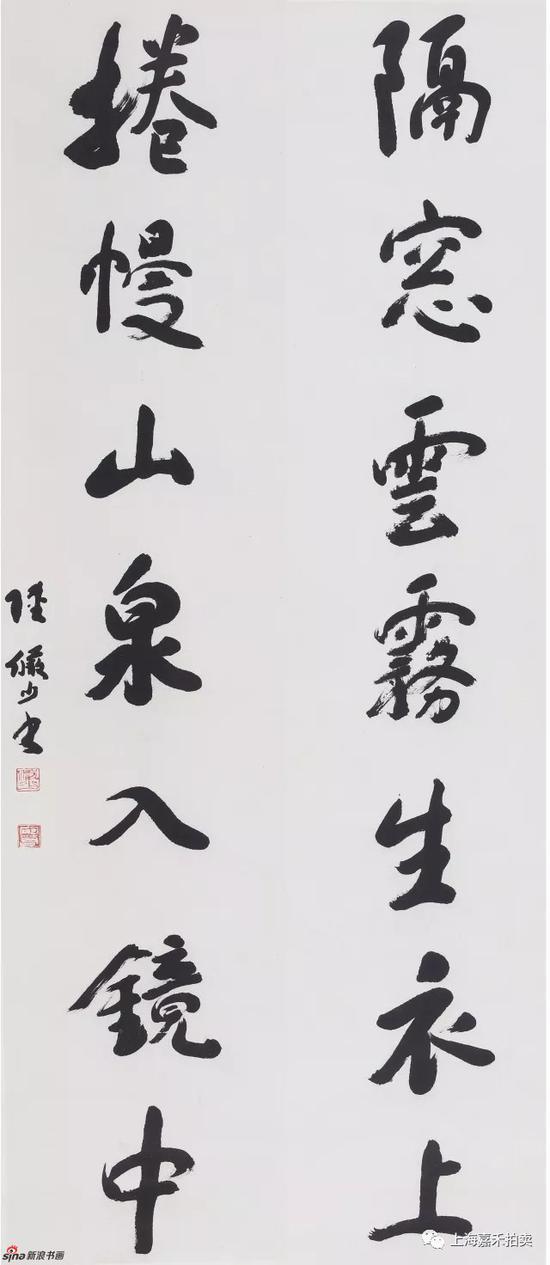 隔窓雲霧生衣上
捲幔山泉入鏡中
陸儼少書
sina新浪书画
上海嘉禾拍卖